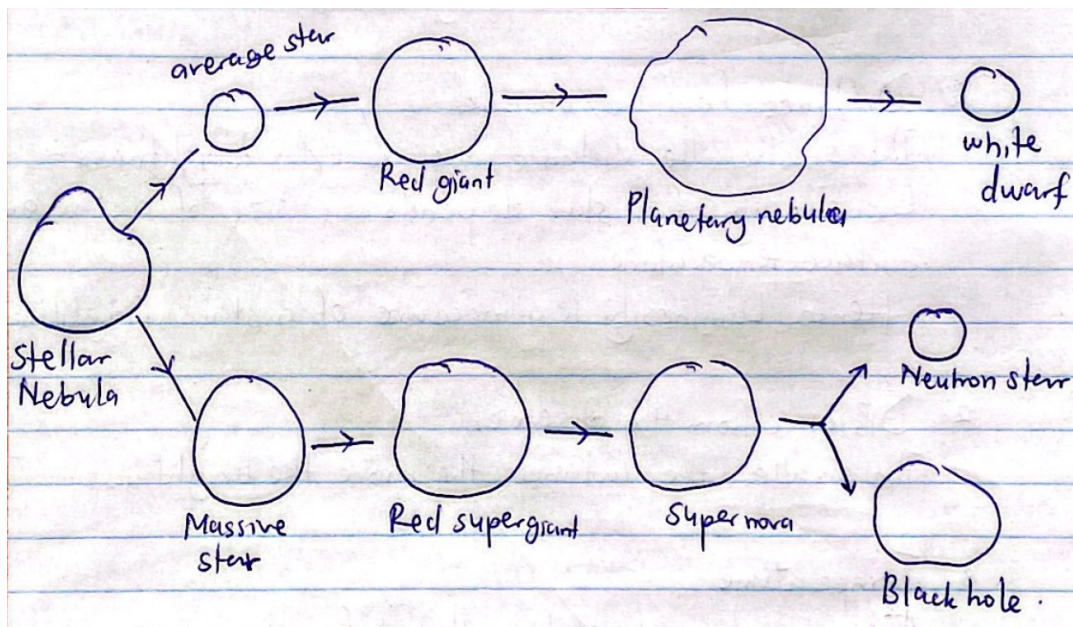 average star
Red giant
Planetary nebula
white
dwarf
Stellar
Nebula
Massive
star
Red supergiant
Supernova
Neutron star
Black hole.